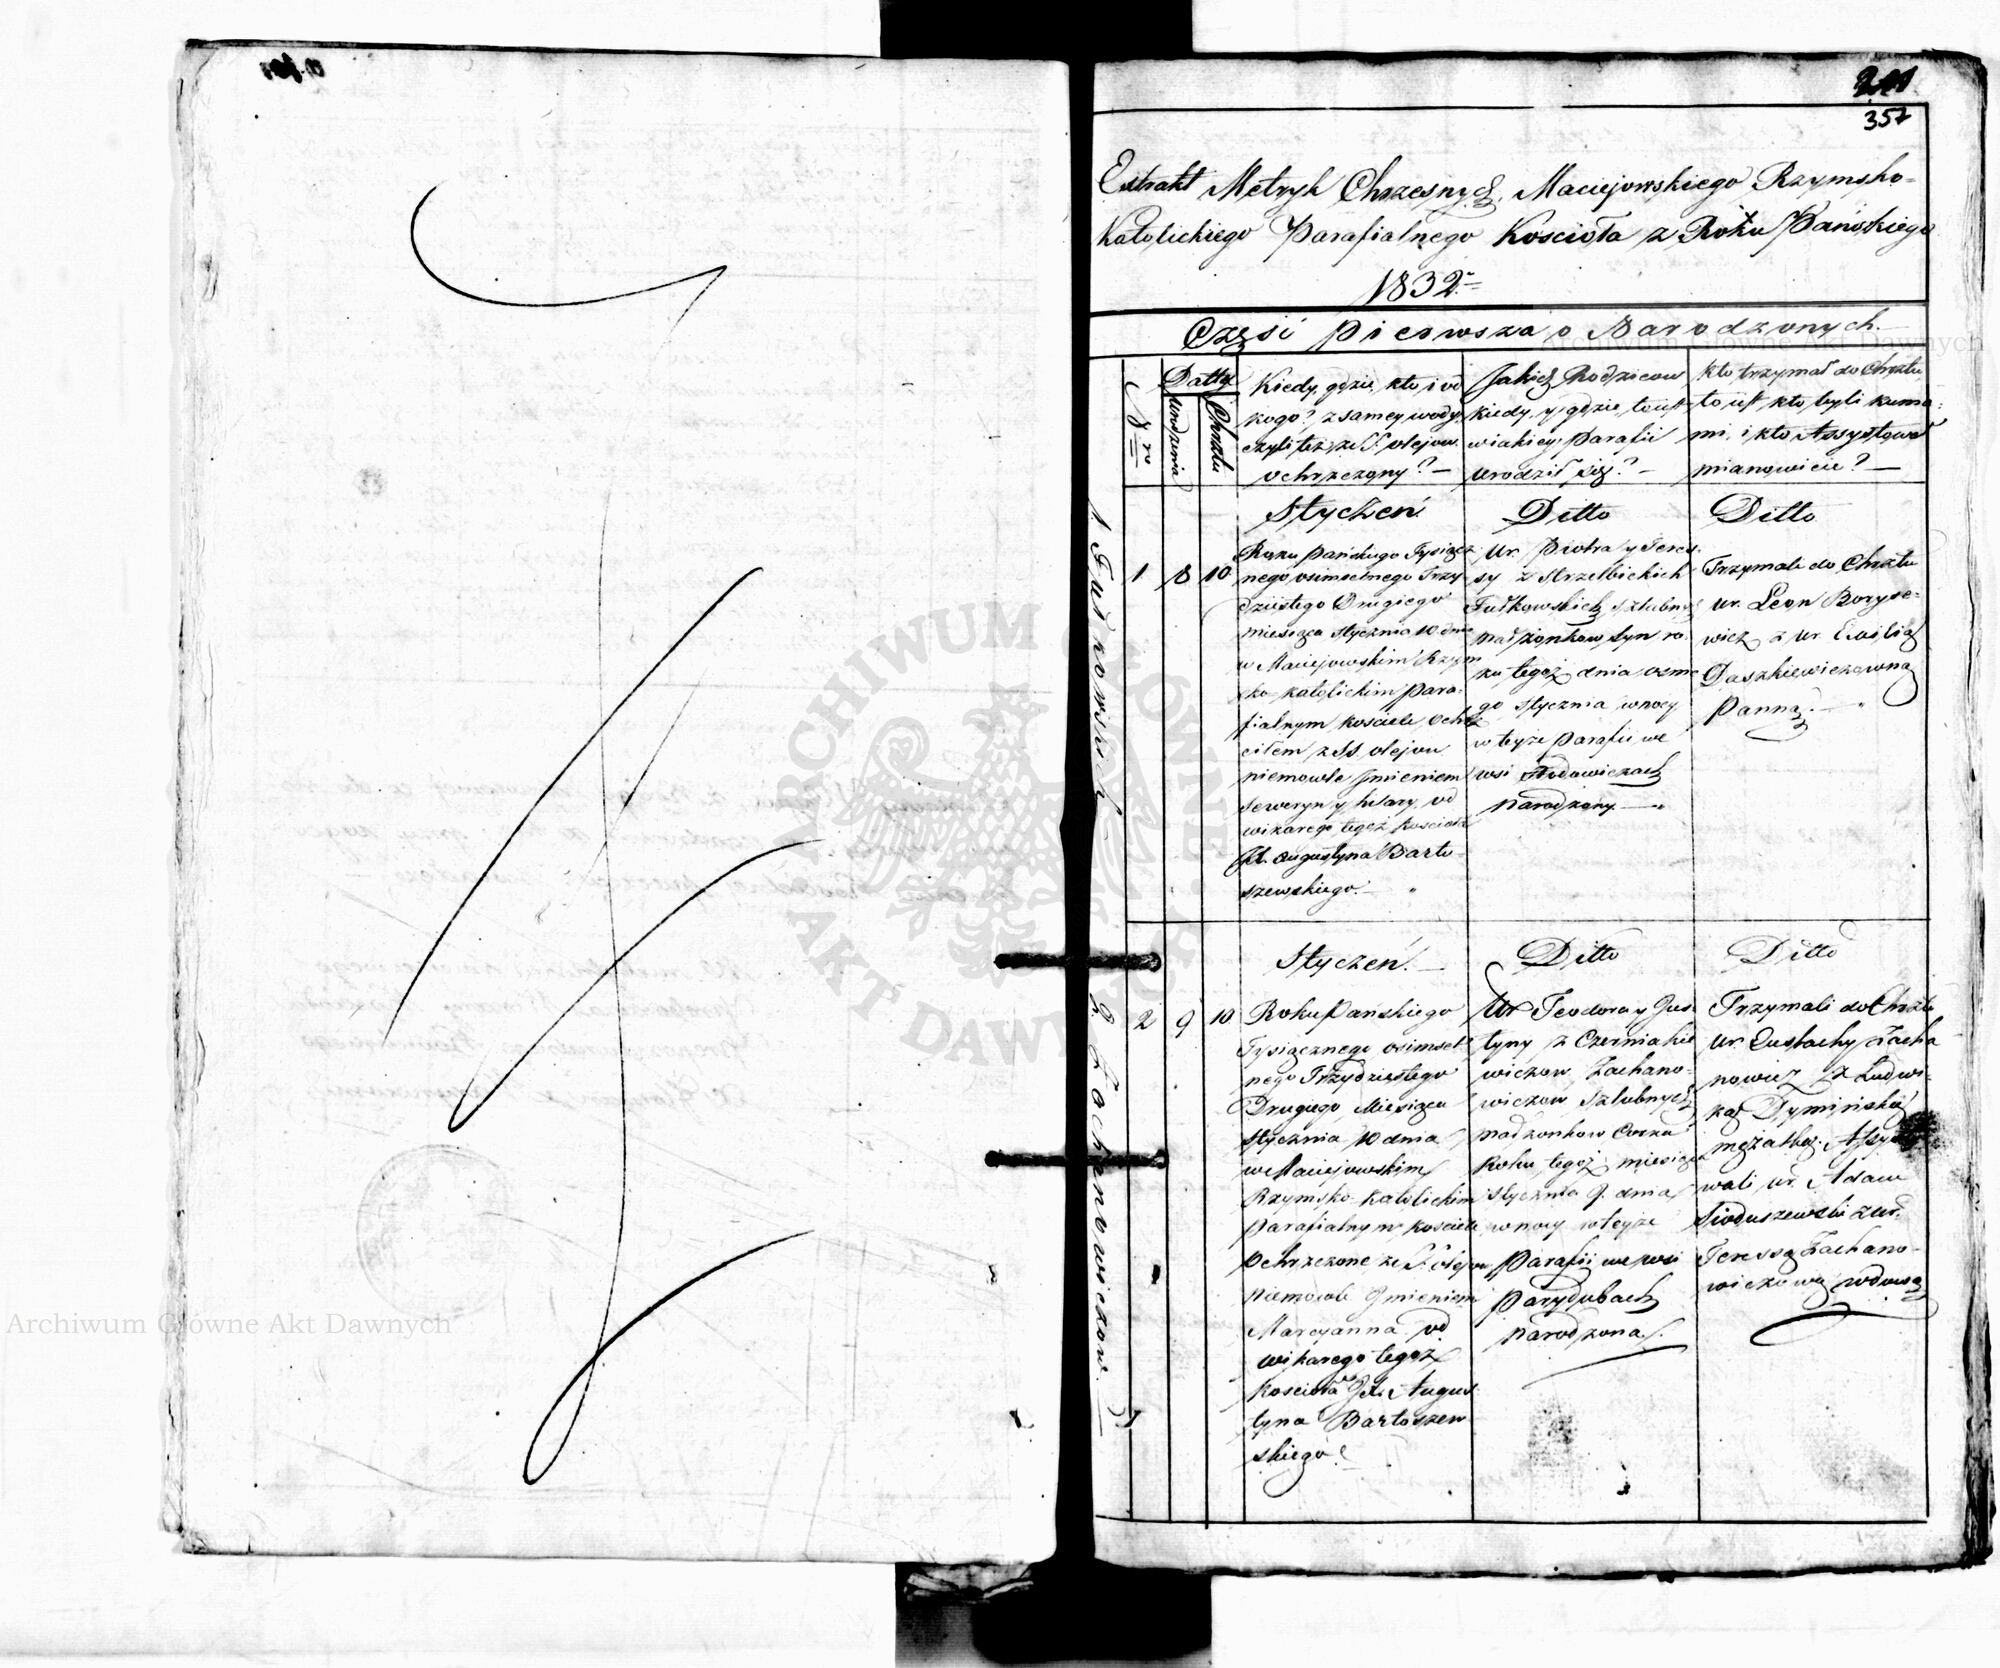 211
357
Extrakt Metryk Chrzesnych Maciejowskiego Rzymsko-
Katolickiego Parafialnego Kościoła z Roku Pańskiego
1832.
Część Pierwsza o Narodzonych.
Nro
Datta
Urodzenia
Chrztu
Kiedy, gdzie, kto i od
kogo? z samey wody,
czyli też ze S. olejow
ochrzczony? —
Jakich Rodzicow
kiedy, y gdzie, to iest
w iakiey Parafii
urodził się? —
kto trzymał do Chrztu
to iest, kto byli kuma-
mi, i kto Assystował
mianowicie? —
1 Tutkowskich
Styczeń
1 8 10
Roku Pańskiego Tysiącz
nego osimsetnego Trzy
dziestego Drugiego
miesiąca Stycznia 10 dnia
w Maciejowskim Rzym
sko-katolickim Para-
fialnym kosciele Ochrz
ciłem z SS. olejow
niemowle Jmieniem
Seweryn y hilary od
wikarego tegoż kosciola
Jx. Augustyna Barto
szewskiego. —
Ditto
Ur. Piotra y Teres-
sy z Strzelbickich
Tutkowskich szlubnych
małżonkow syn ro-
ku tegoż dnia osme
go Stycznia w nocy
w teyże Parafii we
wsi
narodzony. —
Ditto
Trzymali do Chrztu
ur. Leon Boryse-
wicz z ur. Emilią
Daszkiewiczowną
Panną. —
2 Zochanowiczow
Styczeń. —
2 9 10
Roku Pańskiego
Tysiącznego osimset
nego Trzydziestego
Drugiego Miesiąca
Stycznia 10 dnia
w Maciejowskim
Rzymsko-Katolickim
Parafialnym kosciele
Ochrzczone ze S. olejow
niemowle Jmieniem
Maryanna od
wikarego tegoż
kosciola Jx. Augus
tyna Bartoszew
skiego.
Ditto
Ur. Teodora y Jus
tyny z Czerniakie
wiczow Zachano-
wiczow Szlubnych
małżonkow Corka
Roku tegoż miesiąca
Stycznia 9. dnia
w nocy w teyże
Parafii we wsi
Parydubach
narodzona.
Ditto
Trzymali do Chrztu
ur. Eustachy Zacha
nowicz z Ludwi-
ką Tymińską
mężatką. Assysto
wali ur. Adam
Sieduszewski z ur.
Teressą Zachano-
wiczową wdową
Archiwum Główne Akt Dawnych
Archiwum Główne Akt Dawnych
ARCHIWUM GŁÓWNE AKT DAWNYCH